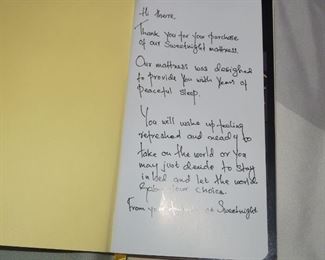 Hi there,
Thank you for your purchase
of our Sweetnight mattress.
Our mattress was designed
to provide you with years of
peaceful sleep.
You will wake up feeling
refreshed and ready to
take on the world or you
may just decide to stay
in bed and let the world
your choice.
From your at Sweetnight